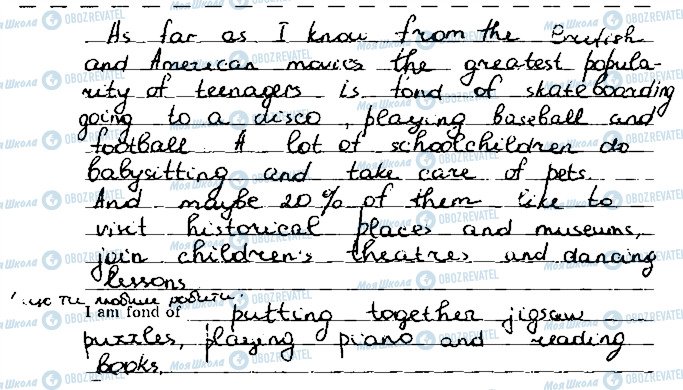 As far as I know from the British
and American movies the greatest popula-
rity of teenagers is fond of skateboarding
going to a disco, playing baseball and
football. A lot of schoolchildren do
babysitting and take care of pets.
And maybe 20% of them like to
visit historical places and museums,
join children's theatres and dancing
lessons
що ти любиш робити.
I am fond of putting together jigsaw
puzzles, playing piano and reading
books.